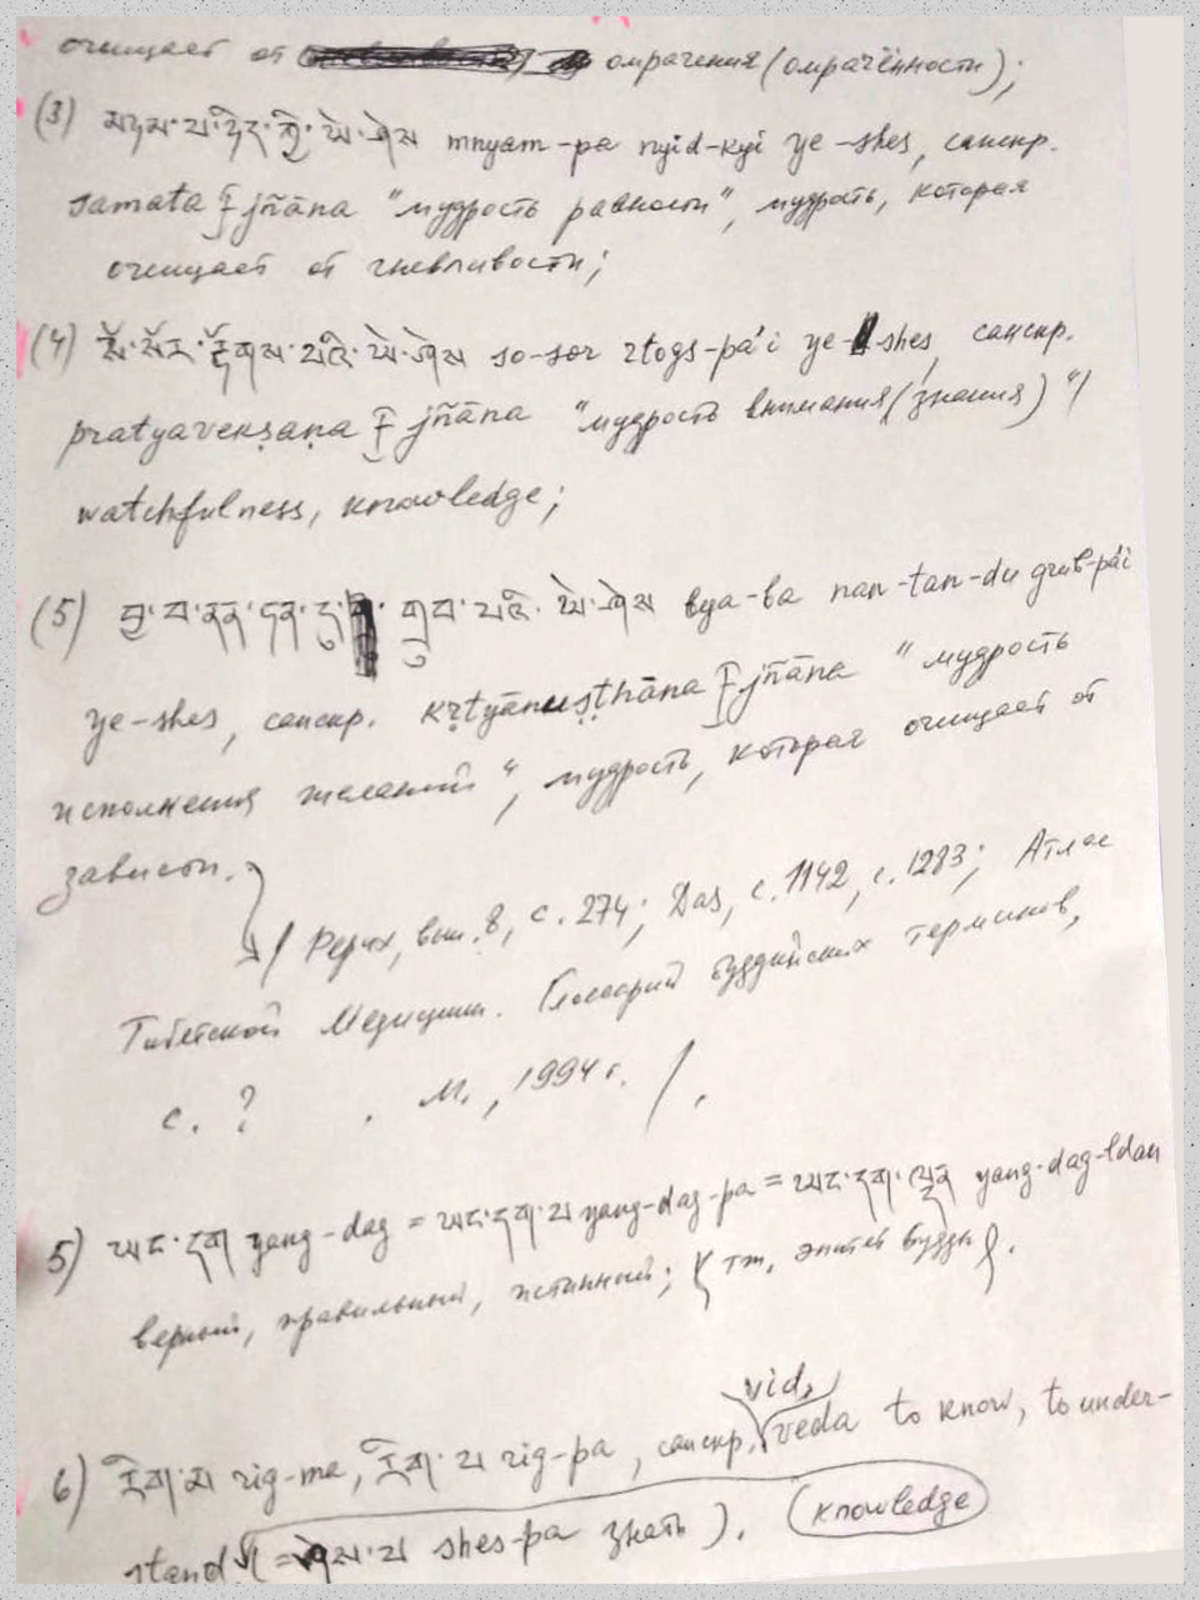 очищает от омрачения (омрачённости);
(3) མཉམ་པ་ཉིད་ཀྱི་ཡེ་ཤེས mnyam-pa nyid-kyi ye-shes, санскр.
samata jñāna "мудрость равности", мудрость, которая
очищает от гневливости;
(4) སོ་སོར་རྟོགས་པའི་ཡེ་ཤེས so-sor rtogs-pa'i ye-shes, санскр.
pratyavekṣaṇa jñāna "мудрость внимания (знания)"/
watchfulness, knowledge;
(5) བྱ་བ་ནན་ཏན་དུ་གྲུབ་པའི་ཡེ་ཤེས bya-ba nan-tan-du grub-pa'i
ye-shes, санскр. kṛtyānuṣṭhāna jñāna "мудрость
исполнения желаний", мудрость, которая очищает от
зависти.
/ Рерих, вып. 8, с. 274; Das, с. 1142, с. 1283; Атлас
Тибетской Медицины. Глоссарий буддийских терминов,
с. ? . М., 1994 г. /.
5) ཡང་དག yang-dag = ཡང་དག་པ yang-dag-pa = ཡང་དག་ལྡན yang-dag-ldan
верный, правильный, истинный; { тж, эпитет Будды }.
vid,
6) རིག་མ rig-ma, རིག་པ rig-pa, санскр. veda to know, to under-
stand (= ཤེས་པ shes-pa знать). (knowledge)